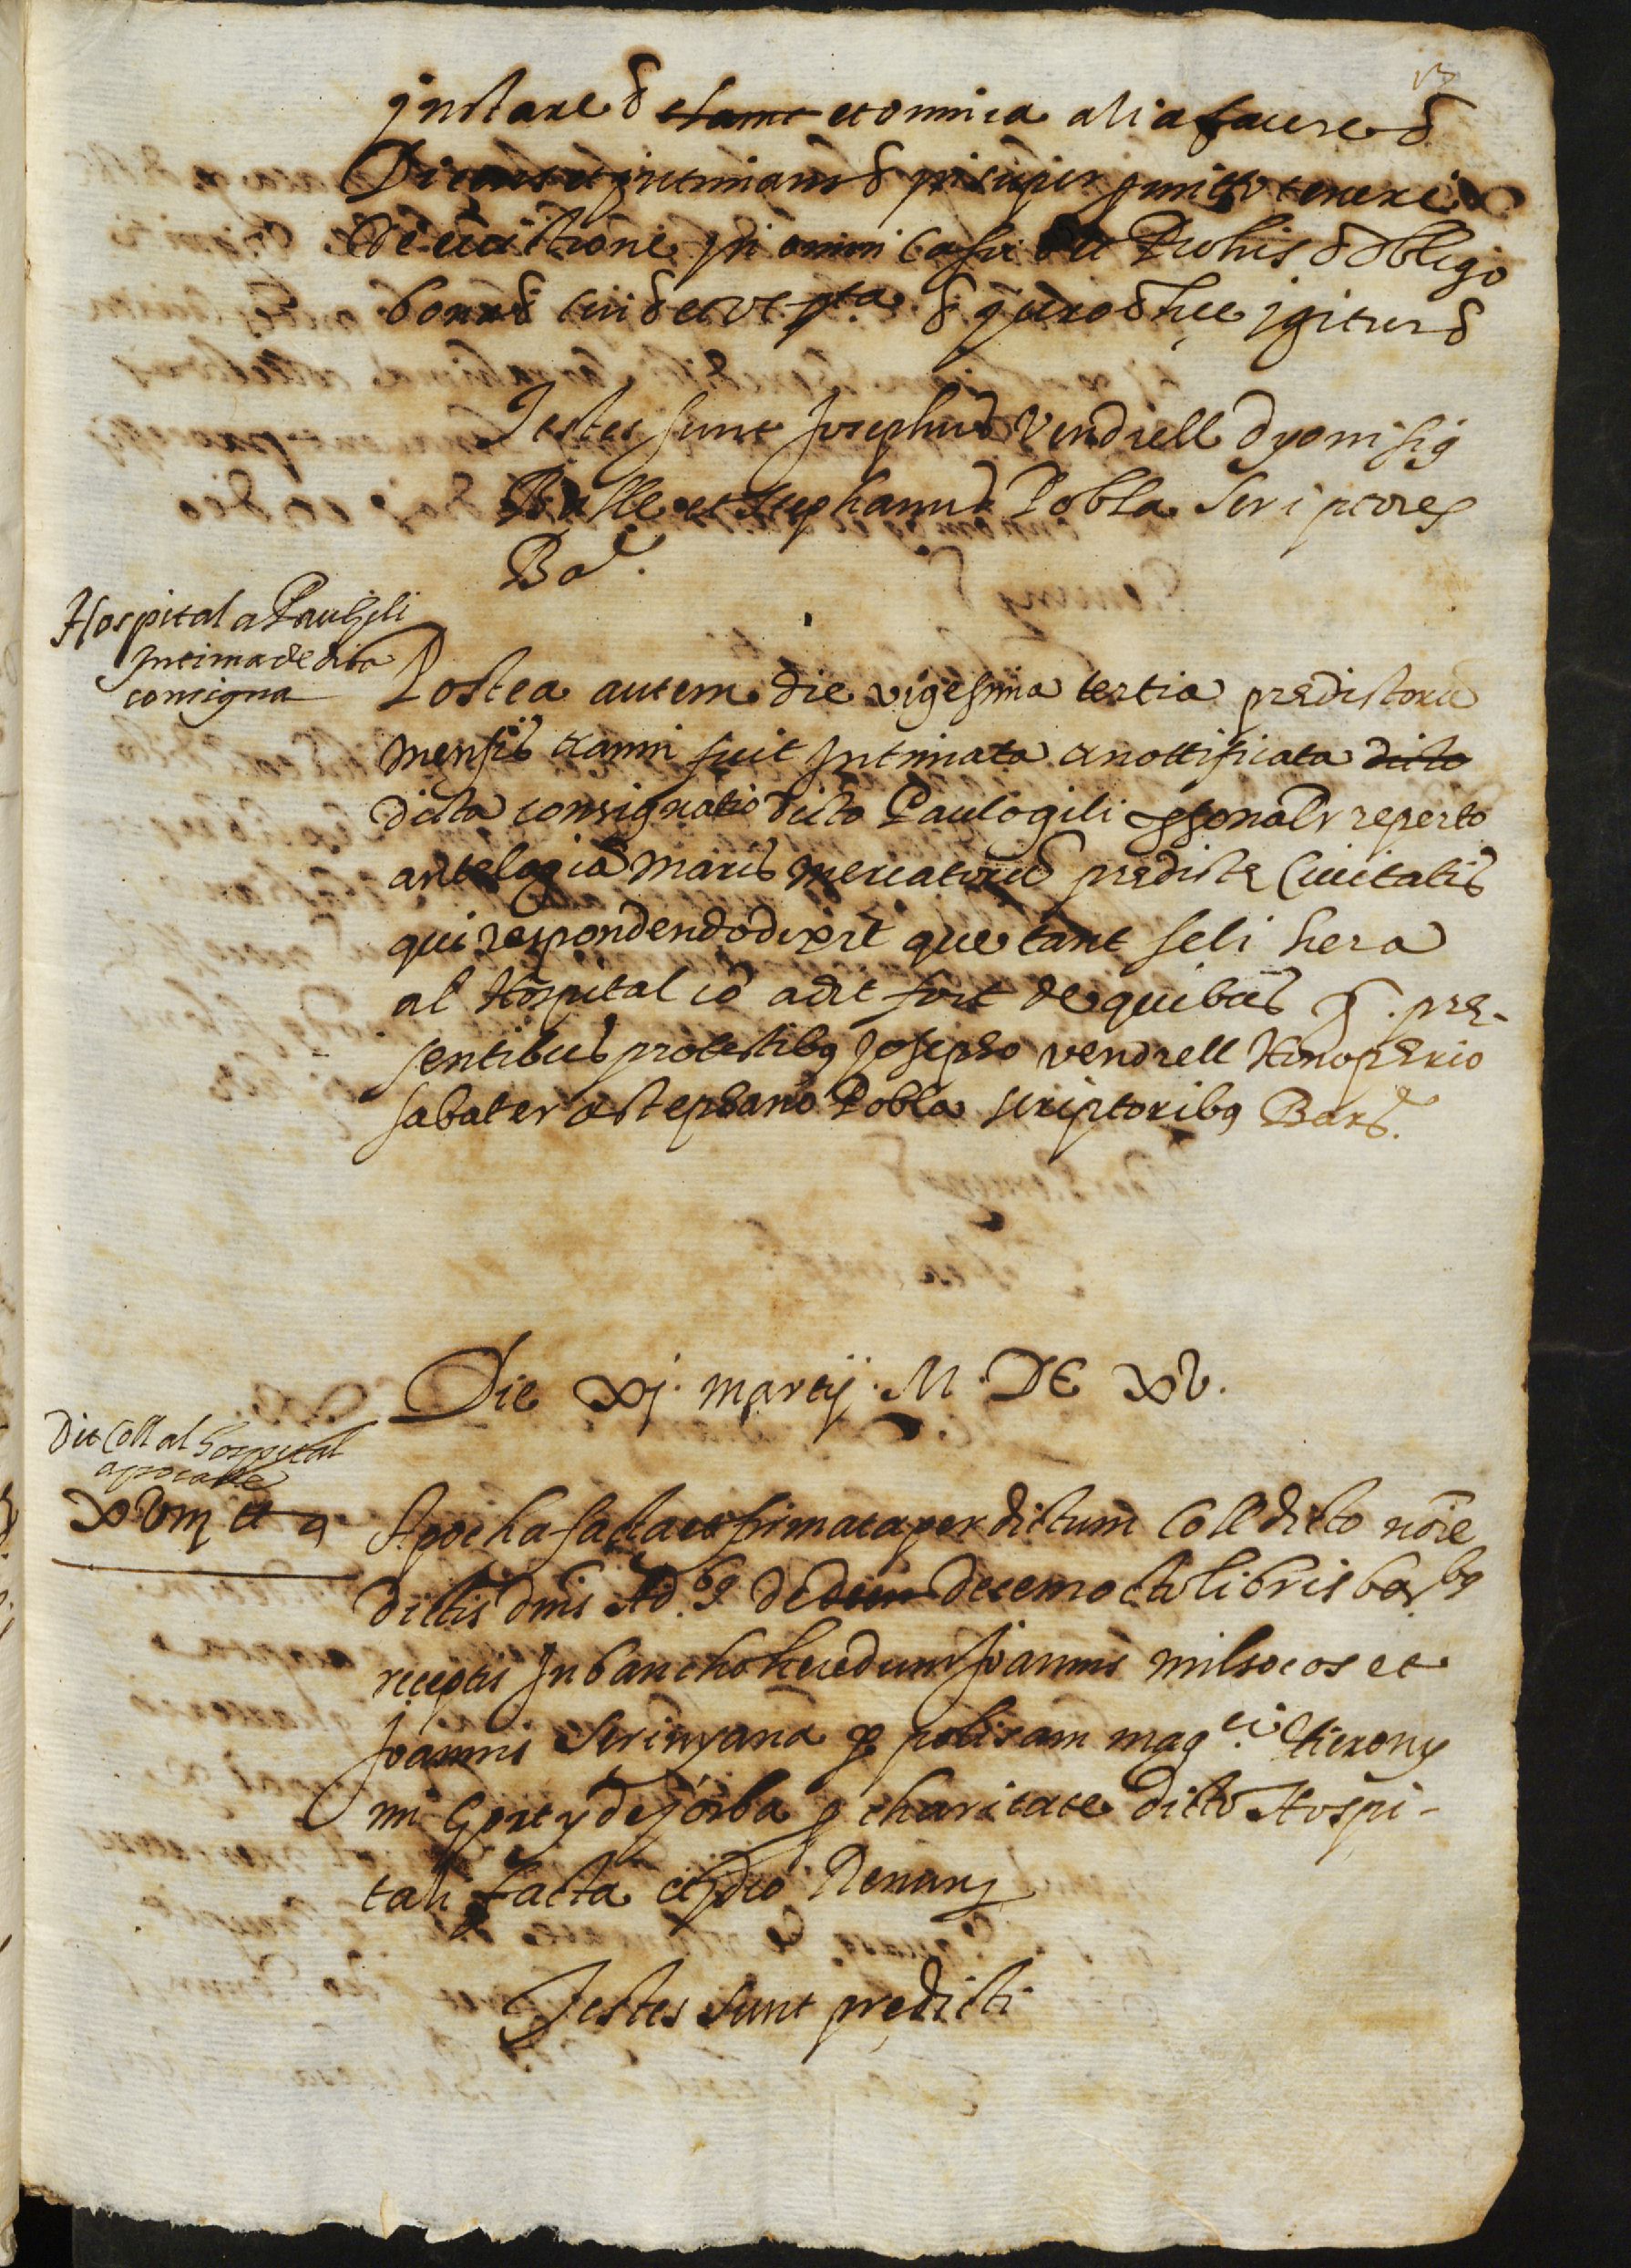 instare & etiam et omnia alia facere &
Dicens et intimans & insuper promitto teneri &
de euictione in omni casu et Prohis & obligo
bona & cui & et vt pta & juro & hec igitur &
Testes sunt Josephus Vendrell dyonisiꝰ
Batlle et stephanus Pobla scriptores
Bar.
Hospital a Pau Gili
intima de dita
consigna
Postea autem die vigesima tertia prædictorum
mensis & anni fuit intimata & nottificata dicto
dicta consignatio dicto Paulo gili personalr reperto
ante logiam maris mercatorum prædictæ Ciuitatis
qui respondendo dixit que tant seli hera
al Hospital co adit fort de quibus &. præ-
sentibus pro testibꝰ Josepho vendrell Honophrio
sabater & stephano Pobla scriptoribꝰ Bar.
Die xj. martij. M. DC xv.
Dit Coll al hospital
apocha de
xviii ll
Apocha facta et firmata per dictum Coll dicto noie
dictis dnis Ad. de decem decem octo libris bar
receptis In bancho heredum Joannis milsocos et
Joannis Serinyana per polisam mag.ci Hierony
mi Gort y de jorba p charitate dicto Hospi-
tali facta et ideo Renuns
Testes sunt predicti